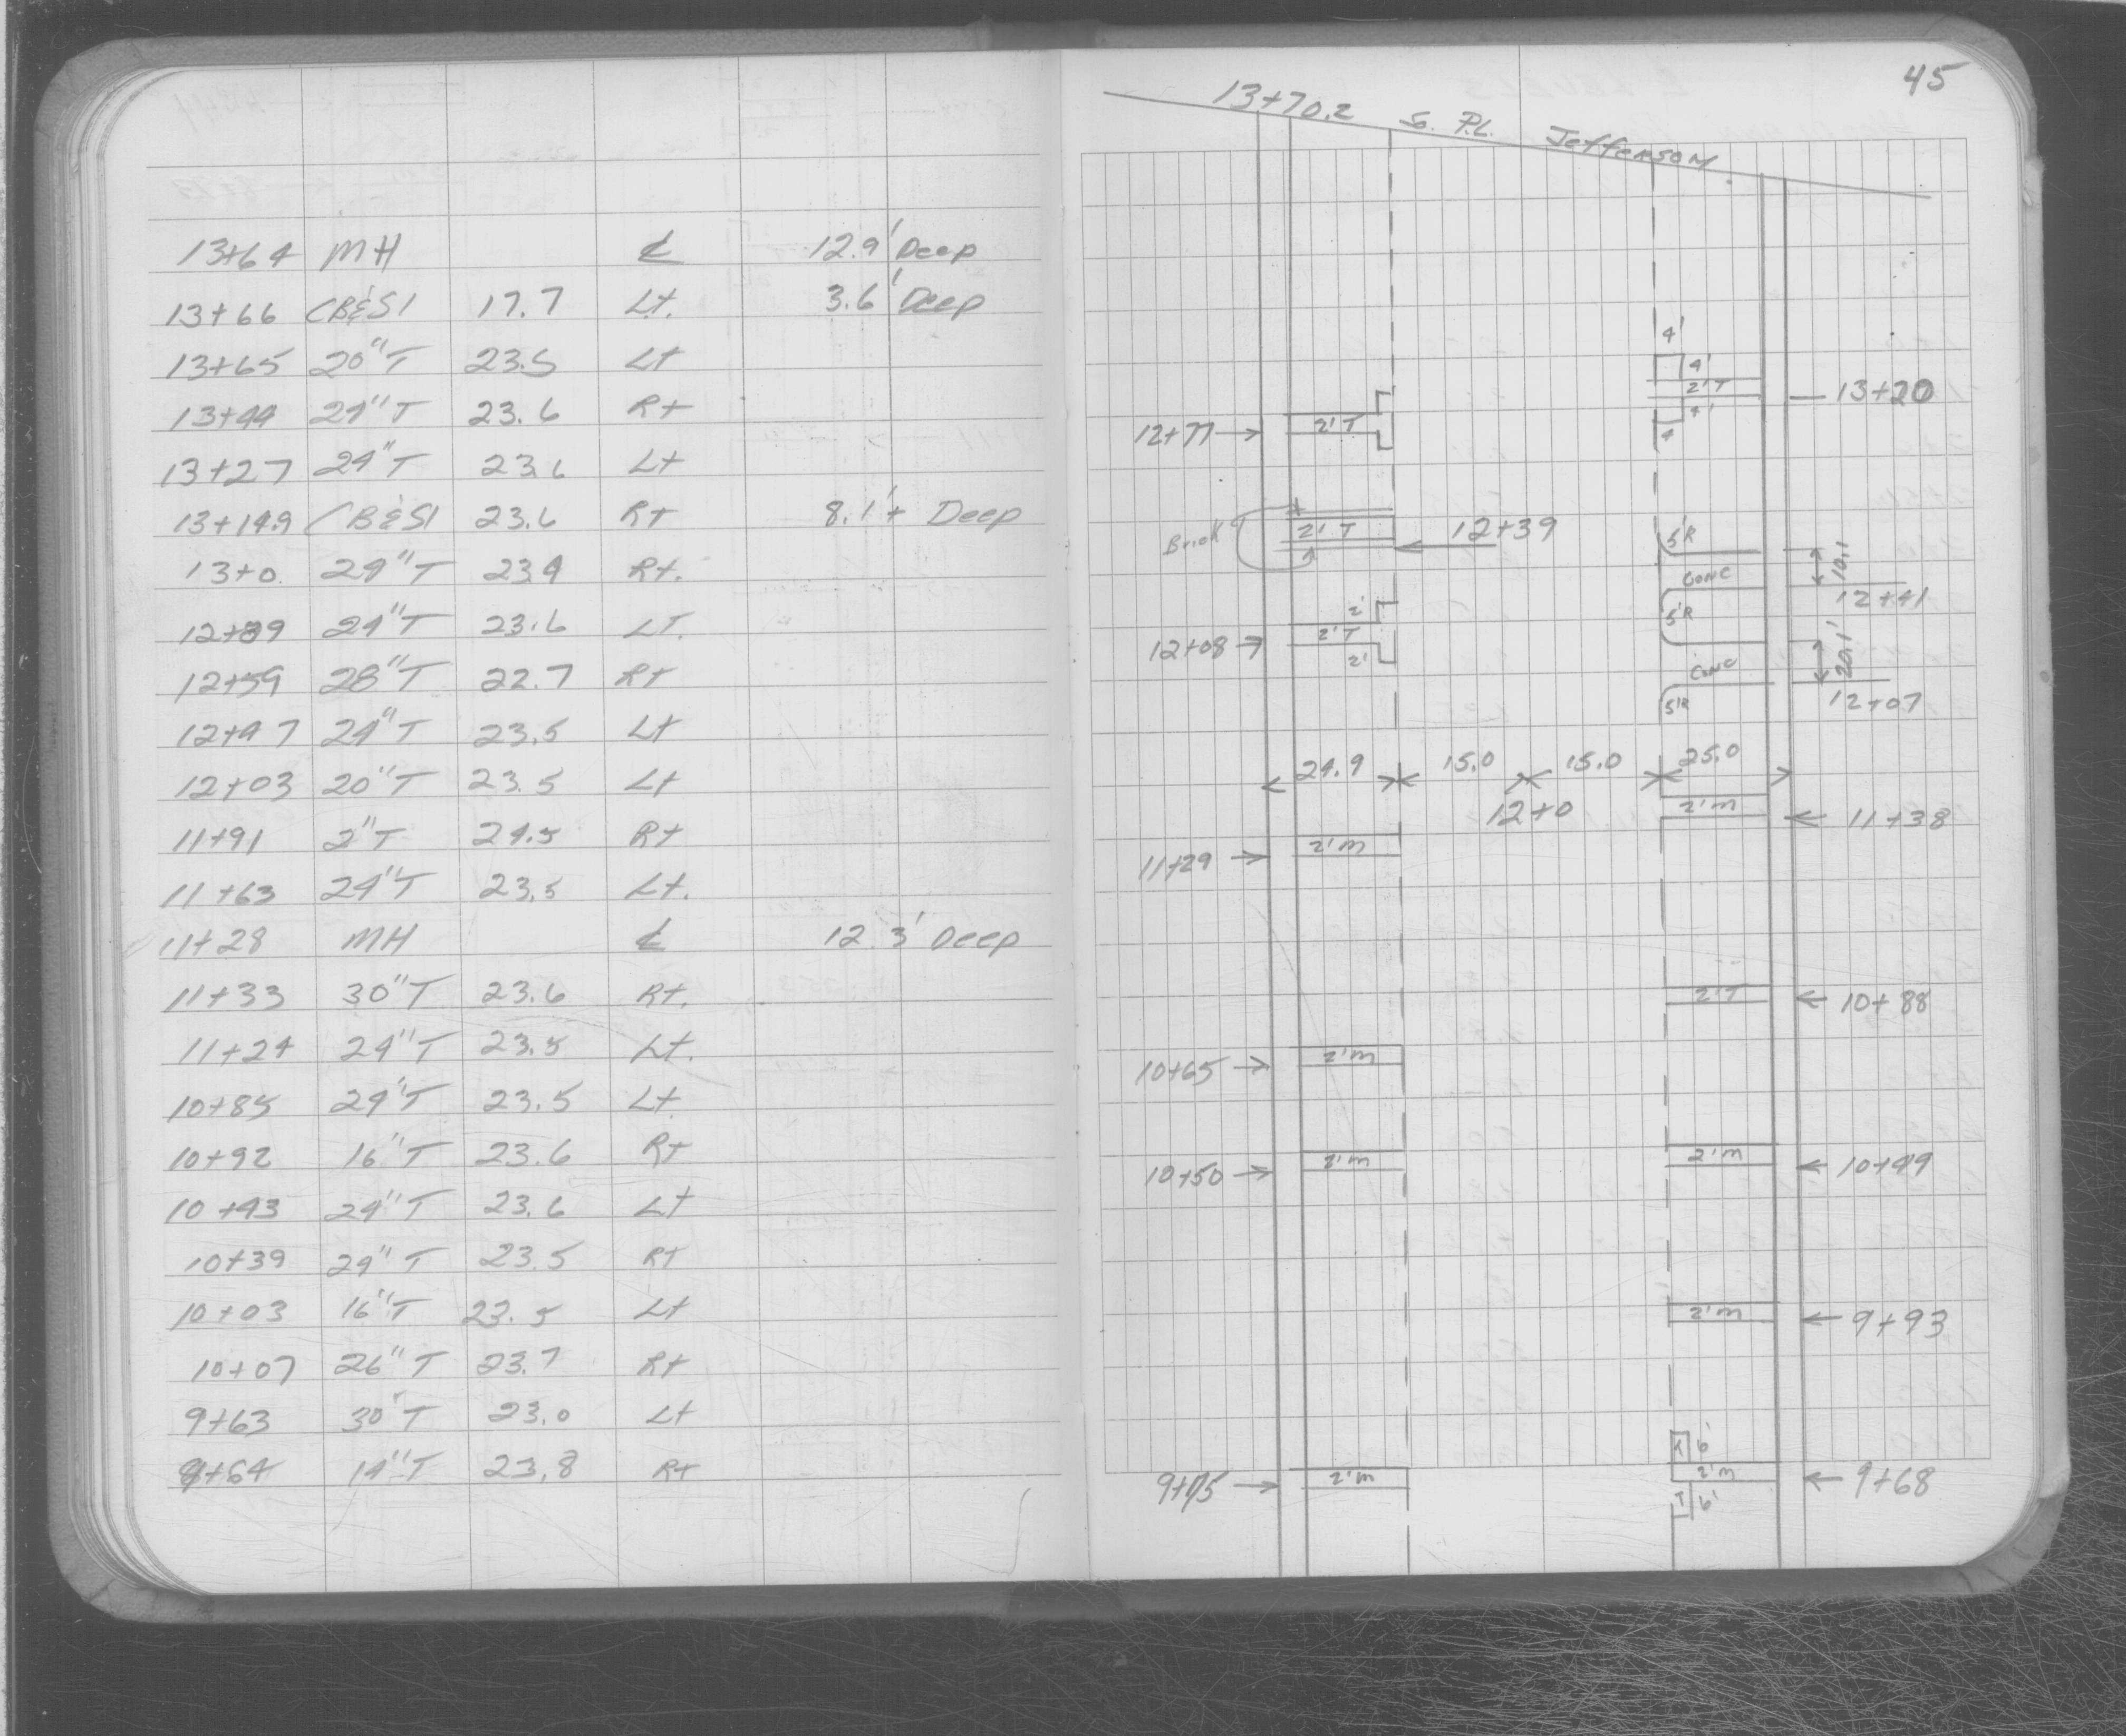 13+64 MH ℄ 12.9' Deep
13+66 CB&SI 17.7 Lt. 3.6' Deep
13+65 20"T 23.5 Lt
13+44 24"T 23.6 Rt
13+27 24"T 23.6 Lt
13+14.9 CB&SI 23.6 Rt 8.1'+ Deep
13+0 24"T 23.4 Rt.
12+89 24"T 23.6 LT.
12+59 28"T 22.7 Rt
12+47 24"T 23.5 Lt
12+03 20"T 23.5 Lt
11+91 2"T 24.5 Rt
11+63 24"T 23.5 Lt.
11+28 MH ℄ 12.3' Deep
11+33 30"T 23.6 Rt.
11+24 24"T 23.5 Lt.
10+85 24"T 23.5 Lt
10+92 16"T 23.6 Rt
10+43 24"T 23.6 Lt
10+39 24"T 23.5 Rt
10+03 16"T 23.5 Lt
10+07 26"T 23.7 Rt
9+63 30"T 23.0 Lt
14"T 23.8 Rt
45
13+70.2 S. P.L. Jefferson
4'
4'
2'T
4'
4
13+20
12+77 2'T
Brick 2'T 12+39
5'R
CONC
10.1
12+41
5'R
12+08 2'
2'T
2'
CONC
20.1'
5'R
12+07
24.9 15.0 15.0 25.0
12+0
2'M 11+38
11+29 2'M
2'T 10+88
10+65 2'M
10+50 2'M
2'M 10+49
2'M 9+93
T 6'
2'M 9+68
T 6'
9+75 2'M